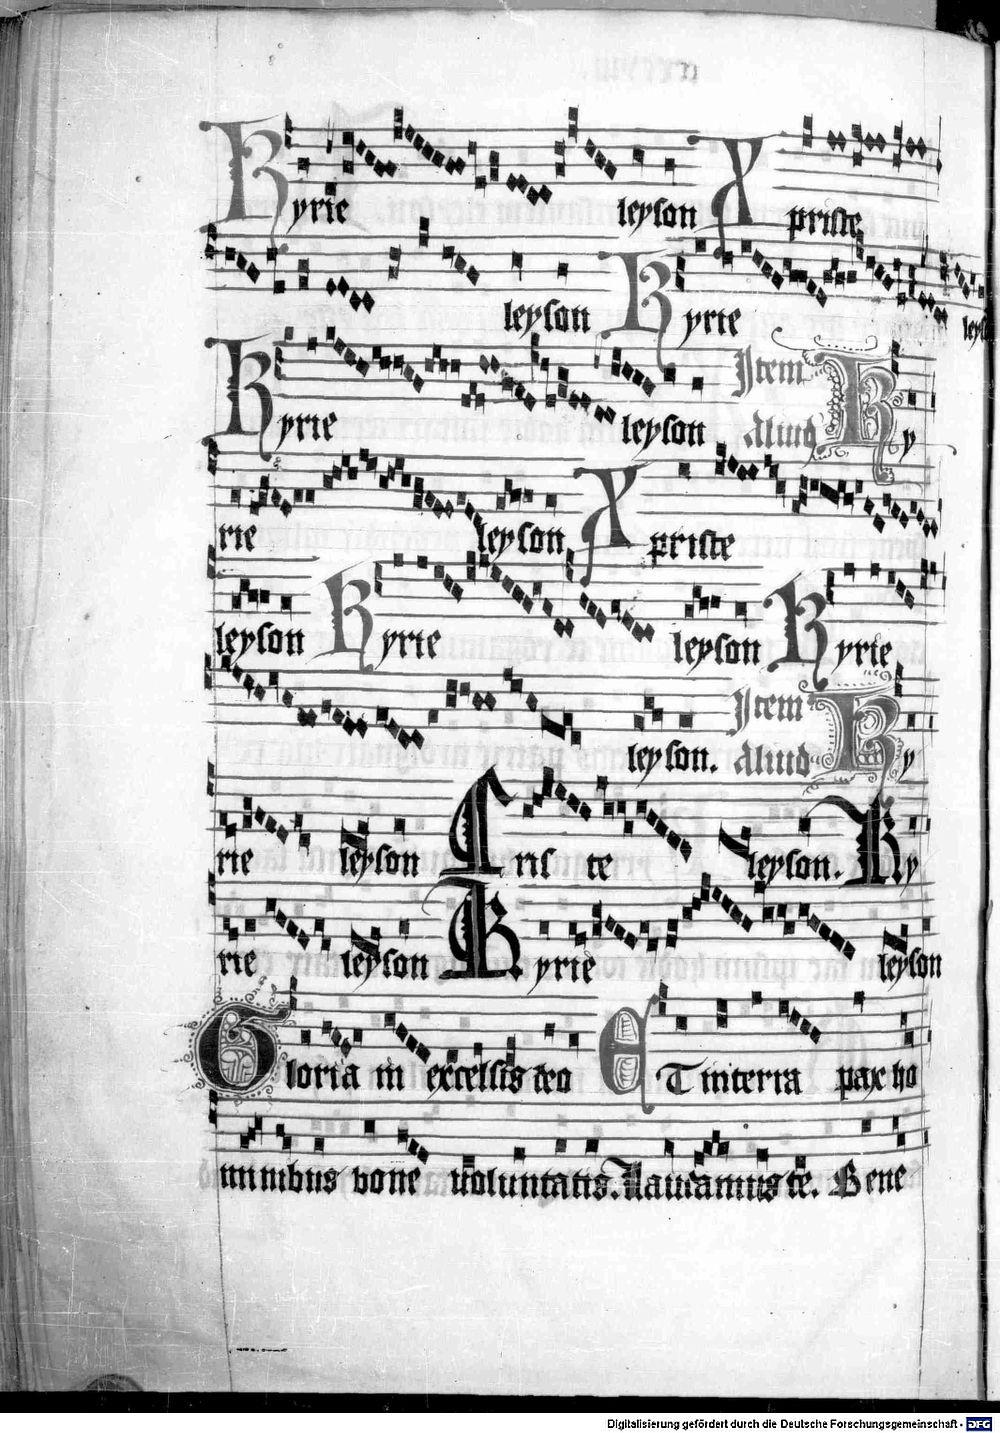 Kyrie leyson Xpriste
leyson Kyrie leyson
Kyrie leyson Item Aliud Ky
rie leyson Xpriste
leyson Kyrie leyson Kyrie
leyson. Item Aliud Ky
rie leyson Criste leyson. Ky
rie leyson Kyrie leyson
Gloria in excelsis deo ET in terra pax ho
minibus bone uoluntatis. Laudamus te. Bene
Digitalisierung gefördert durch die Deutsche Forschungsgemeinschaft - DFG